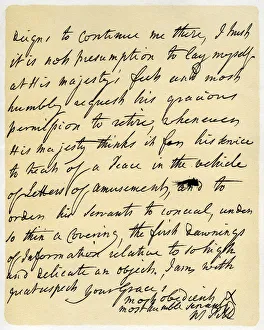 deigns to continue me there, I trust
it is not presumption to lay myself
at His majesty's feet and most
humbly request his gracious
permission to retire, whenever
His majesty thinks it for his service
to treat of a Peace in the vehicle
of Letters of amusement, and to
order his servants to conceal, under
so thin a covering, the first Dawnings
of Information relative to so high
and delicate an object. I am with
great respect your Grace's
most obedient &
most humble servant
W Pitt